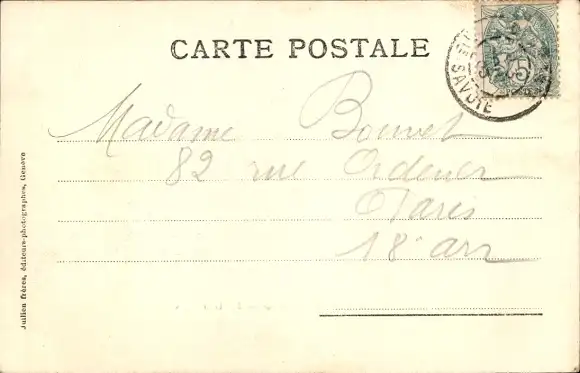 CARTE POSTALE
SAVOIE
5
Madame Bouvet
82 rue Ordener
Paris
18e arr
Jullien frères, éditeurs-photographes, Genève